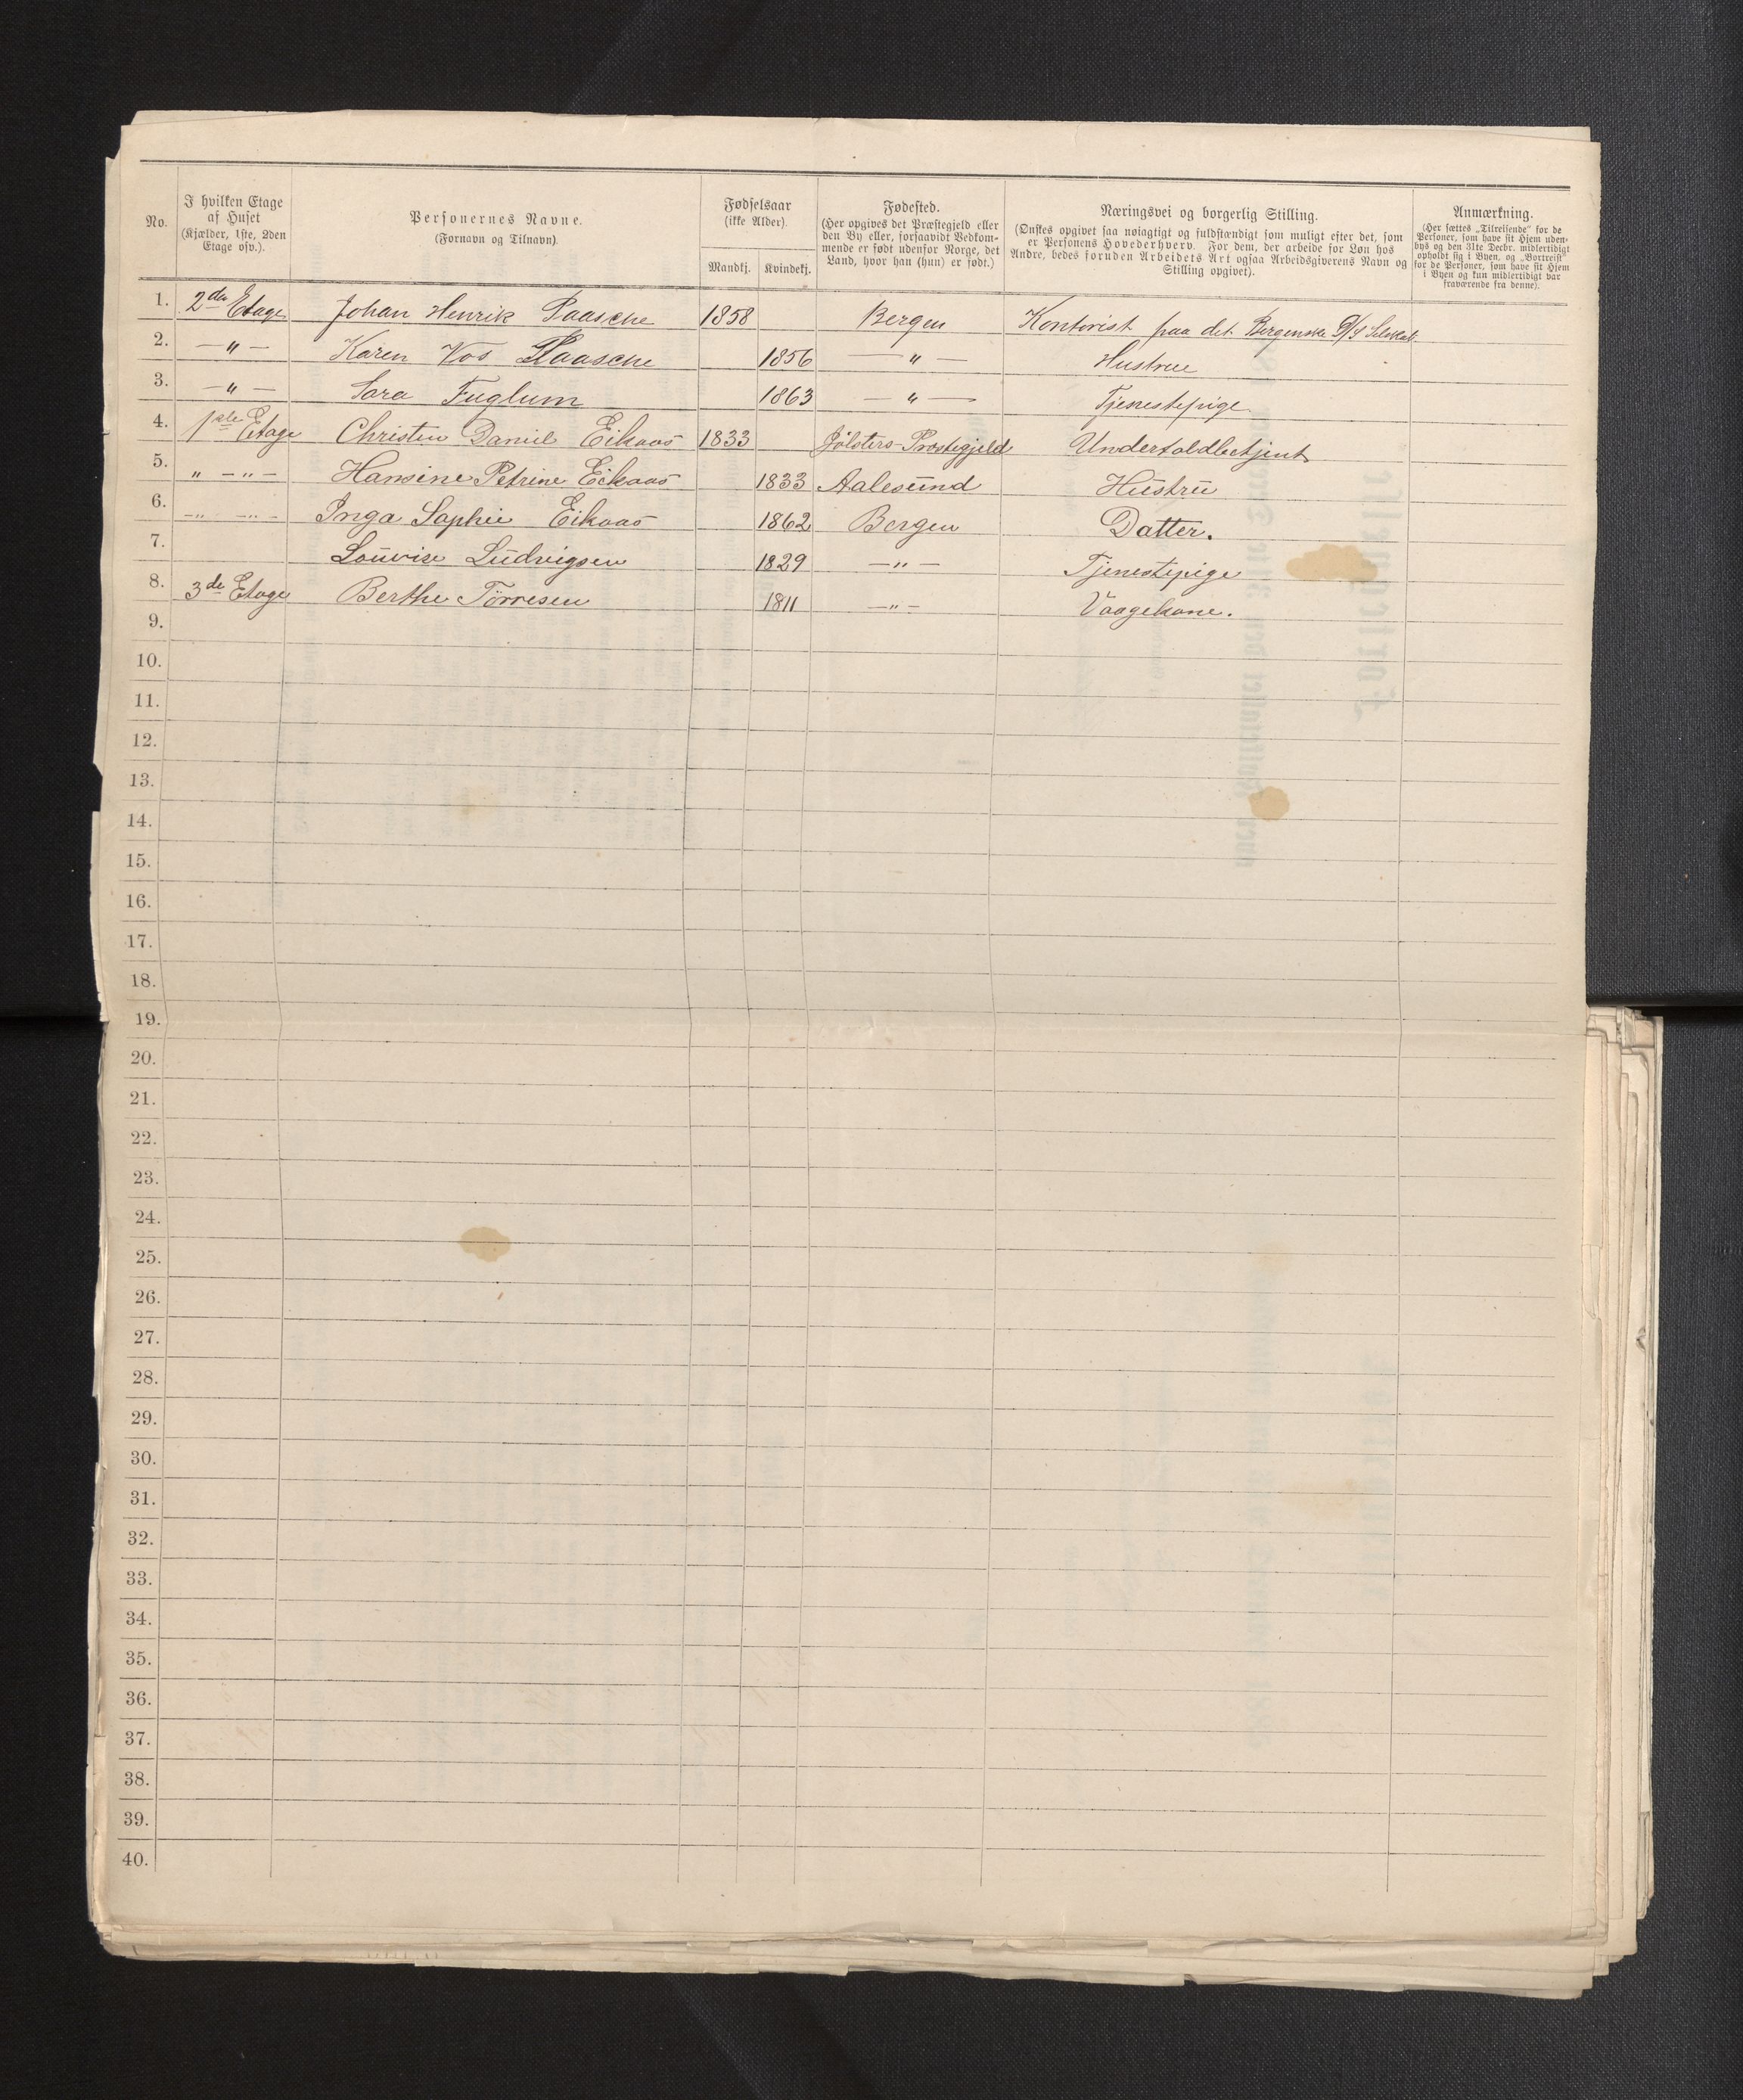 No.
I hvilken Etage af Huset (Kjælder, 1ste, 2den Etage osv.).
Personernes Navne. (Fornavn og Tilnavn).
Fødselsaar (ikke Alder).
Mandkj. Kvindekj.
Fødested. (Her opgives det Præstegjeld eller den By eller, forsaavidt Vedkommende er født udenfor Norge, det Land, hvor han (hun) er født.)
Næringsvei og borgerlig Stilling. (Ønskes opgivet saa nøiagtigt og fuldstændigt som muligt efter det, som er Personens Hovederhverv. For dem, der arbeide for Løn hos Andre, bedes foruden Arbeidets Art ogsaa Arbeidsgiverens Navn og Stilling opgivet).
Anmærkning. (Her sættes „Tilreisende" for de Personer, som have sit Hjem udenbys og den 31te Decbr. midlertidigt opholdt sig i Byen, og „Bortreist" for de Personer, som have sit Hjem i Byen og kun midlertidigt var fraværende fra denne).
1. 2den Etage Johan Henrik Paasche 1858 Bergen Kontorist paa det Bergenske D/S Selskab
2. —"— Karen Vos Paasche 1856 —"— Hustrue
3. —"— Sara Fuglum 1863 —"— Tjenestepige
4. 1ste Etage Christen Daniel Eikaas 1833 Jölsters Prestegjeld Undertoldbetjent
5. " —"— Hansine Petrine Eikaas 1833 Aalesund Hustru
6. —"— —"— Inga Sophie Eikaas 1862 Bergen Datter.
7. Louvise Ludvigsen 1829 —"— Tjenestepige
8. 3de Etage Berthe Törresen 1811 —"— Vaagekone.
9.
10.
11.
12.
13.
14.
15.
16.
17.
18.
19.
20.
21.
22.
23.
24.
25.
26.
27.
28.
29.
30.
31.
32.
33.
34.
35.
36.
37.
38.
39.
40.